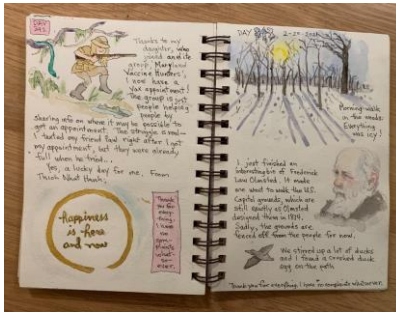 DAY
Thanks to my
daughter, who
joined and its
group, Maryland
Vaccine Hunters's
I now have a
vax appointment!
The group is just
people helping
people by
sharing info on where it may be possible to
get an appointment. The struggle is real-
I texted my friend Paul right after I got
my appointment, but they were already
full when he tried..
Yes, a lucky day for me. From
Thich Nhat Hanh,
happiness
is here
and now
Thank
you for
every-
thing.
I have
no
com-
plaints
what-
so-
ever.
DAY
Morning walk
in the woods.
Everything
was icy!
I just finished an
of Frederick
Law Olmsted. It made
me want to walk the U.S.
Capitol grounds, which are
still exactly as Olmsted
designed them in 1874.
Sadly, the grounds are
fenced off from the people for now.
We stirred up a lot of ducks
and I found a crushed duck
egg on the path
Thank you for everything. I have no complaints whatsoever.